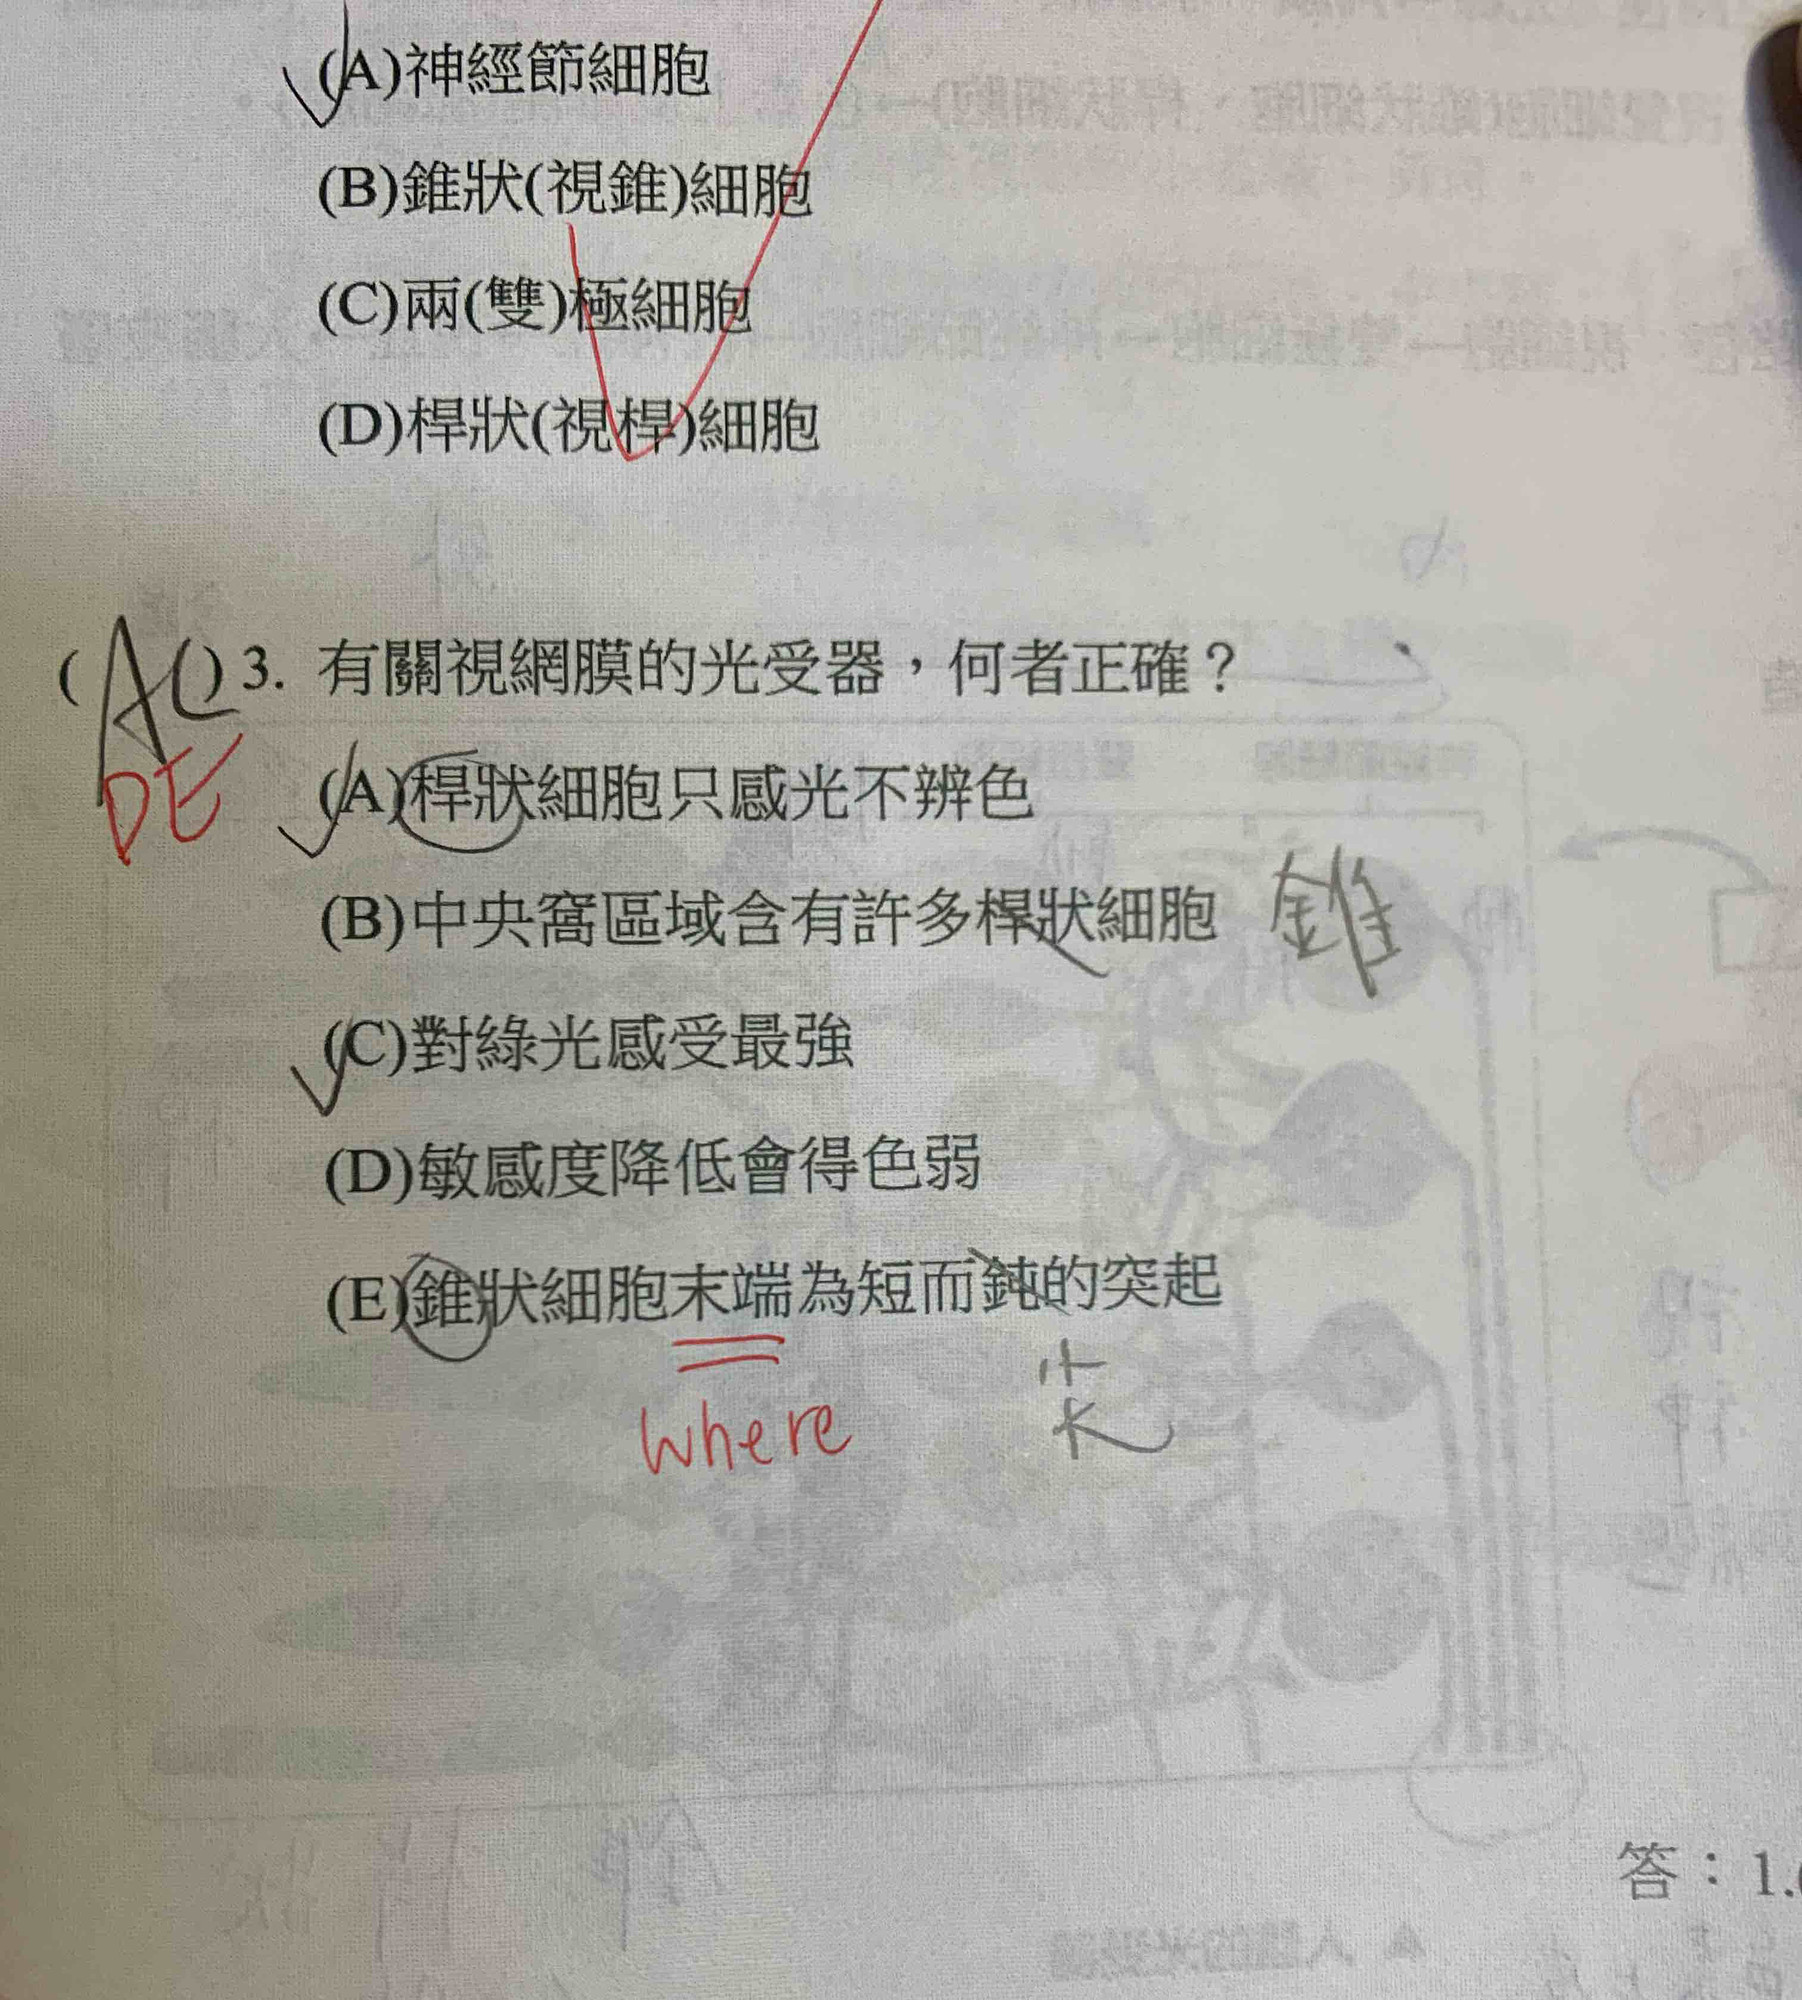 (A)神經節細胞
(B)錐狀(視錐)細胞
(C)兩(雙)極細胞
(D)桿狀(視桿)細胞
(AC)3. 有關視網膜的光受器，何者正確？
DE
(A)桿狀細胞只感光不辨色
(B)中央窩區域含有許多桿狀細胞 錐
(C)對綠光感受最強
(D)敏感度降低會得色弱
(E)錐狀細胞末端為短而鈍的突起
where 尖
答：1.(